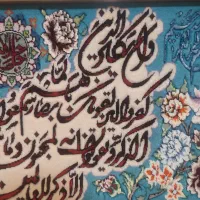 وان یکاد الذین
کفروا لیزلقونک بابصارهم لما
الذکر و یقولون انه لمجنون و ما
الا ذکر للعالمین